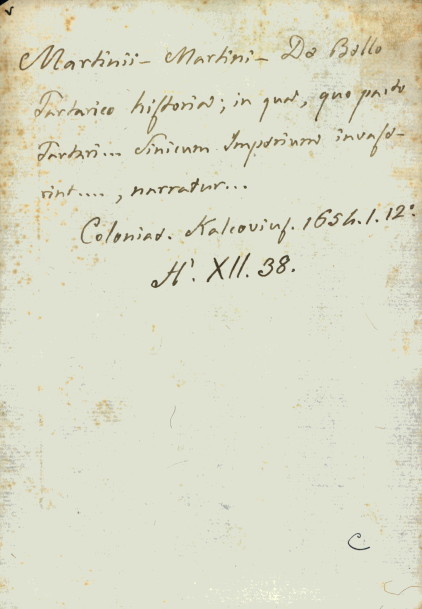 Martinii - Martini - De Bello
Tartarico historia; in qua, quo pacto
Tartari... Sinicum Imperium invase-
rint...., narratur...
Coloniae. Kalcovius. 1654. 1. 12°.
H¹. XII. 38.
C